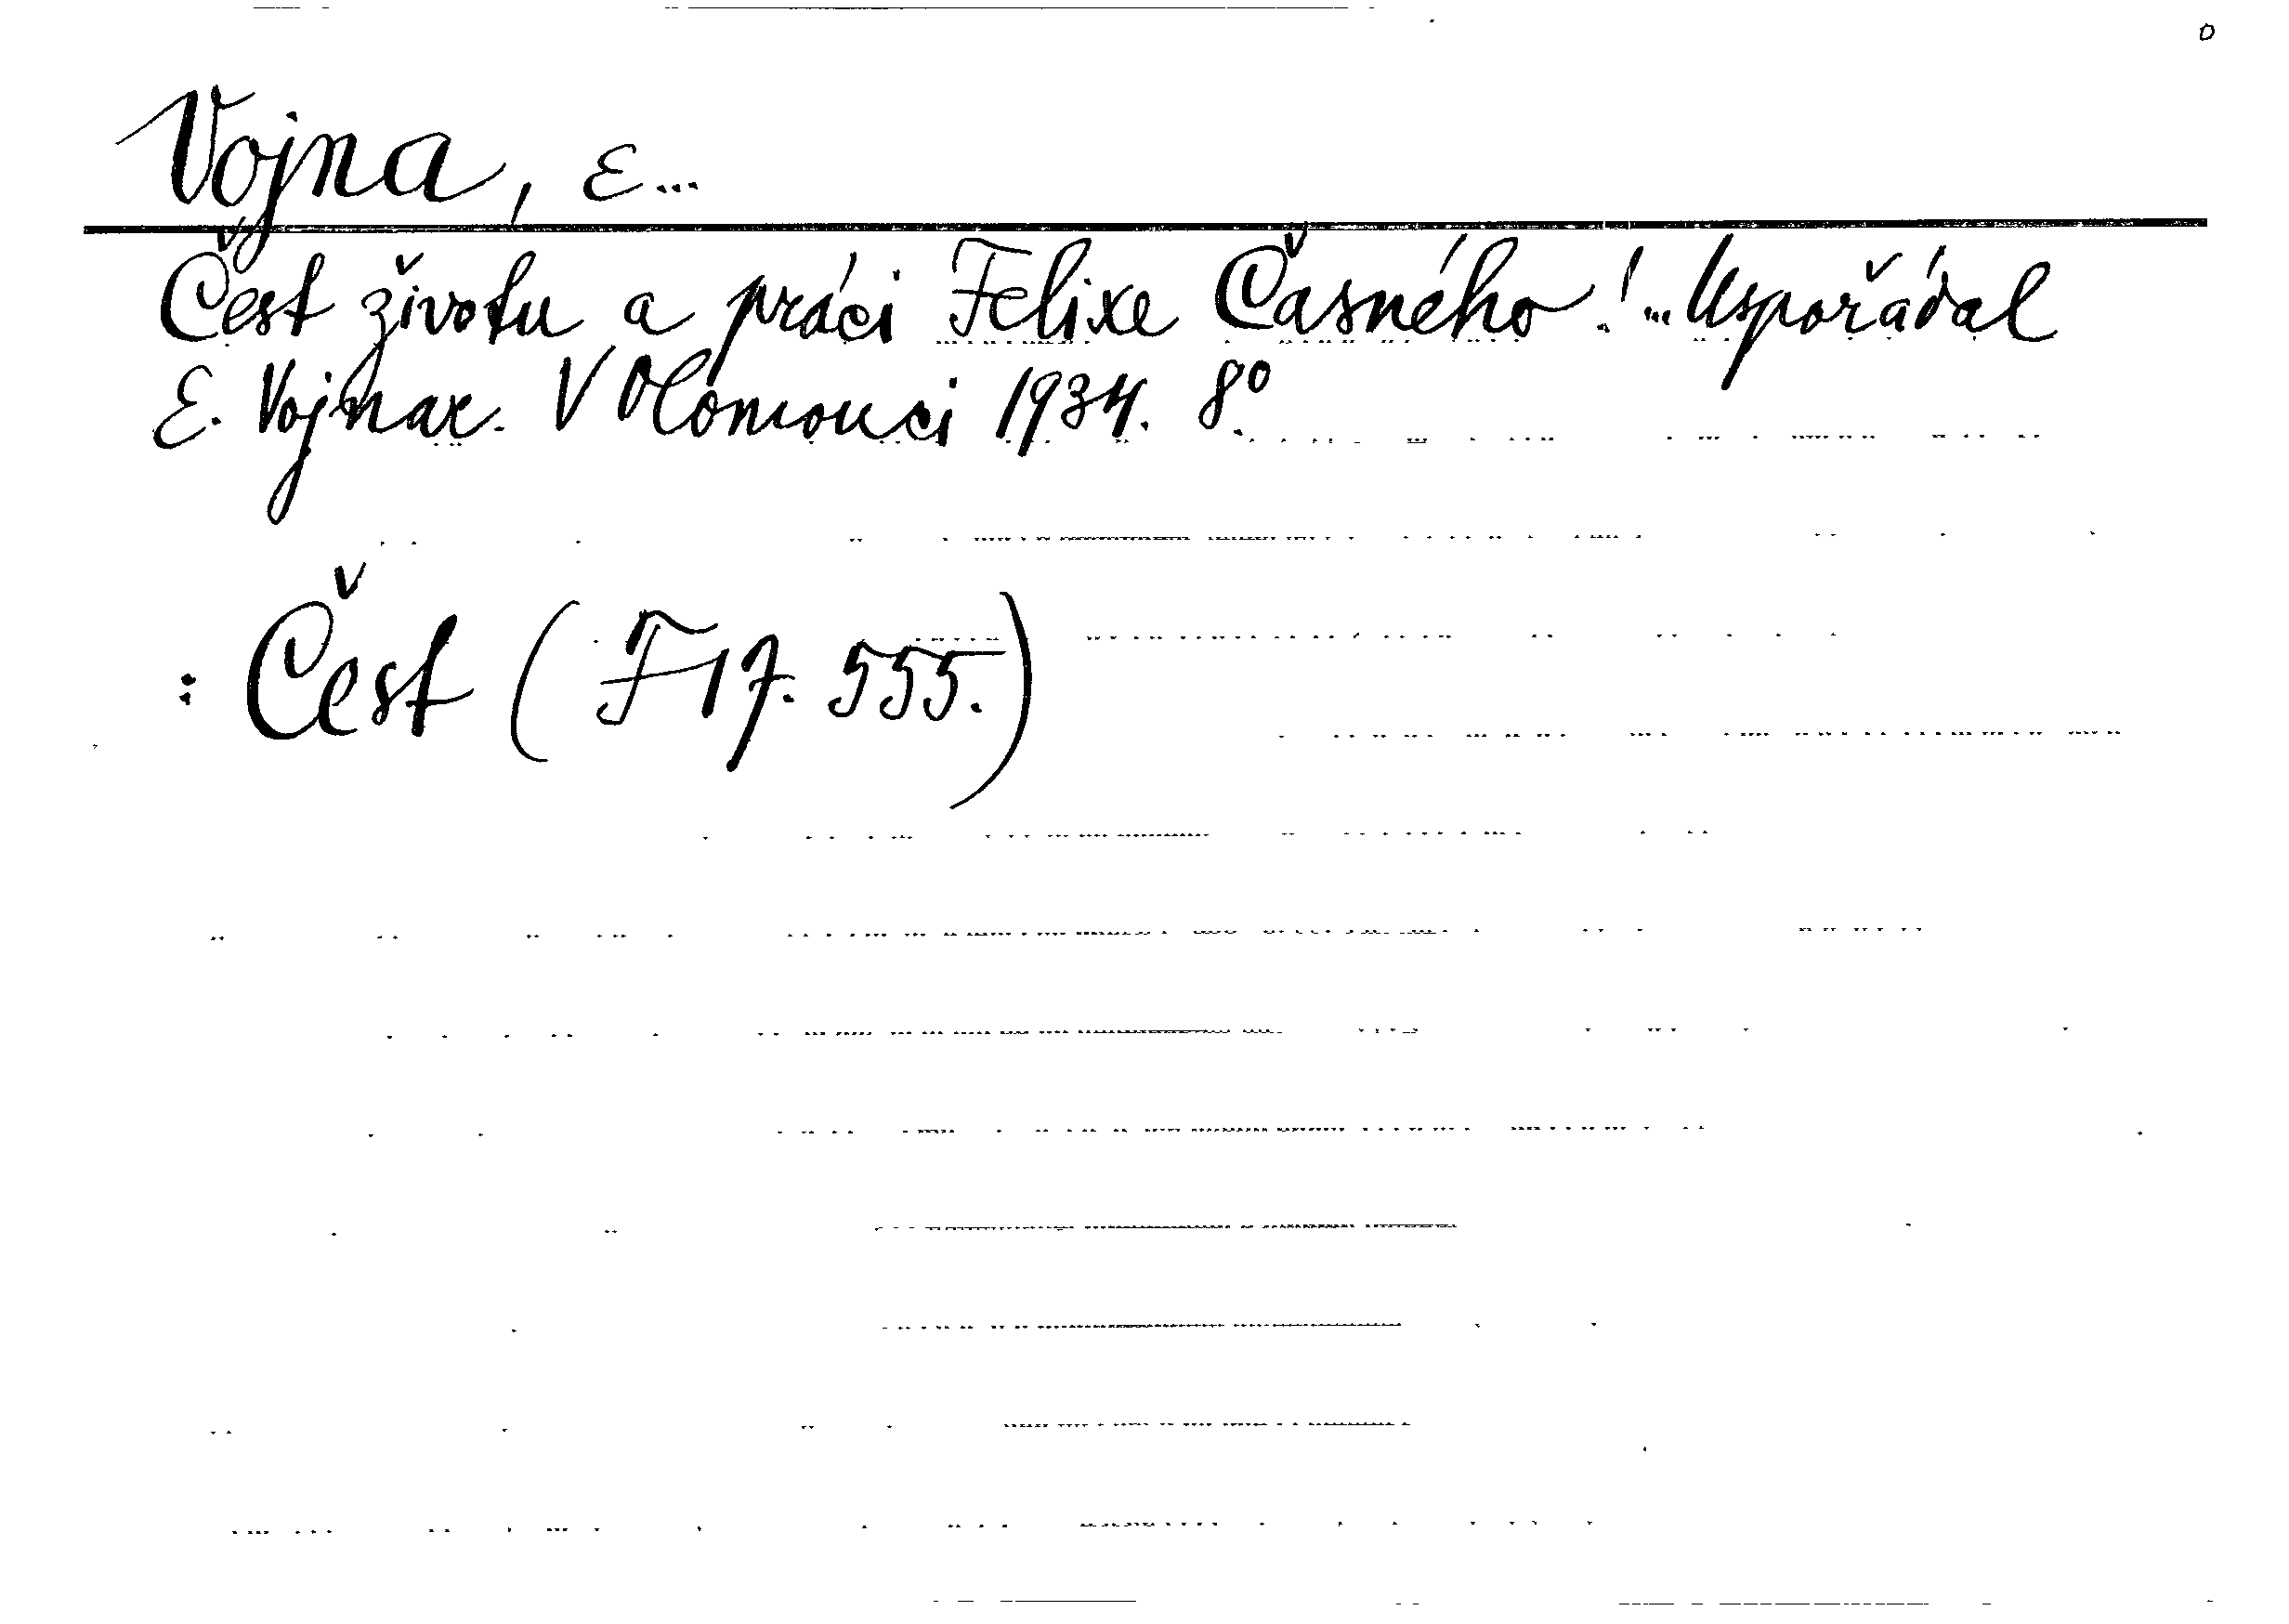 Vojna, E...
Čest životu a práci Felixe Časného! ... Uspořádal
E. Vojnar. V Olomouci 1934. 8°.
: Čest (F 17. 555.)